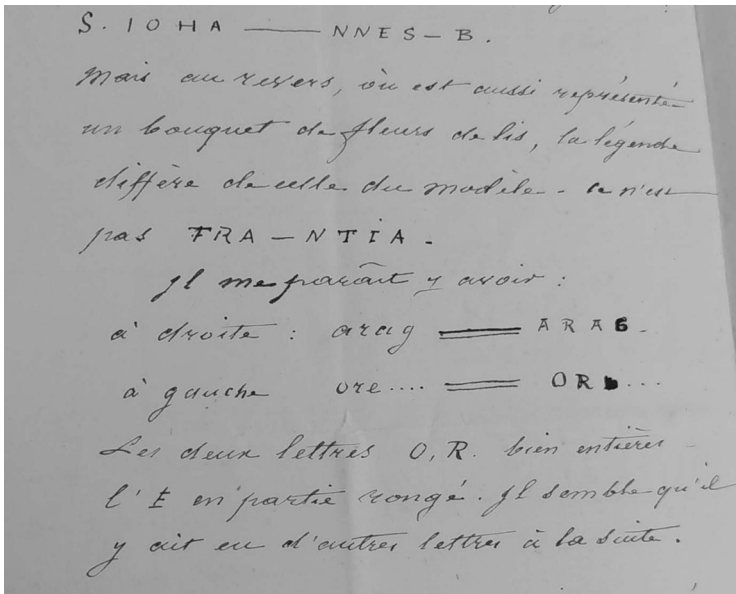 S. IOHA — NNES – B.
Mais au revers, où est aussi représenté
un bouquet de fleurs de lis, la légende
diffère de celle du modèle. Ce n'est
pas FRA – NTIA.
Il me paraît y avoir :
à droite : arag = ARAG.
à gauche ore.... = OR...
Les deux lettres O, R. bien entières
l'E en partie rongé. Il semble qu'il
y ait eu d'autres lettres à la suite.